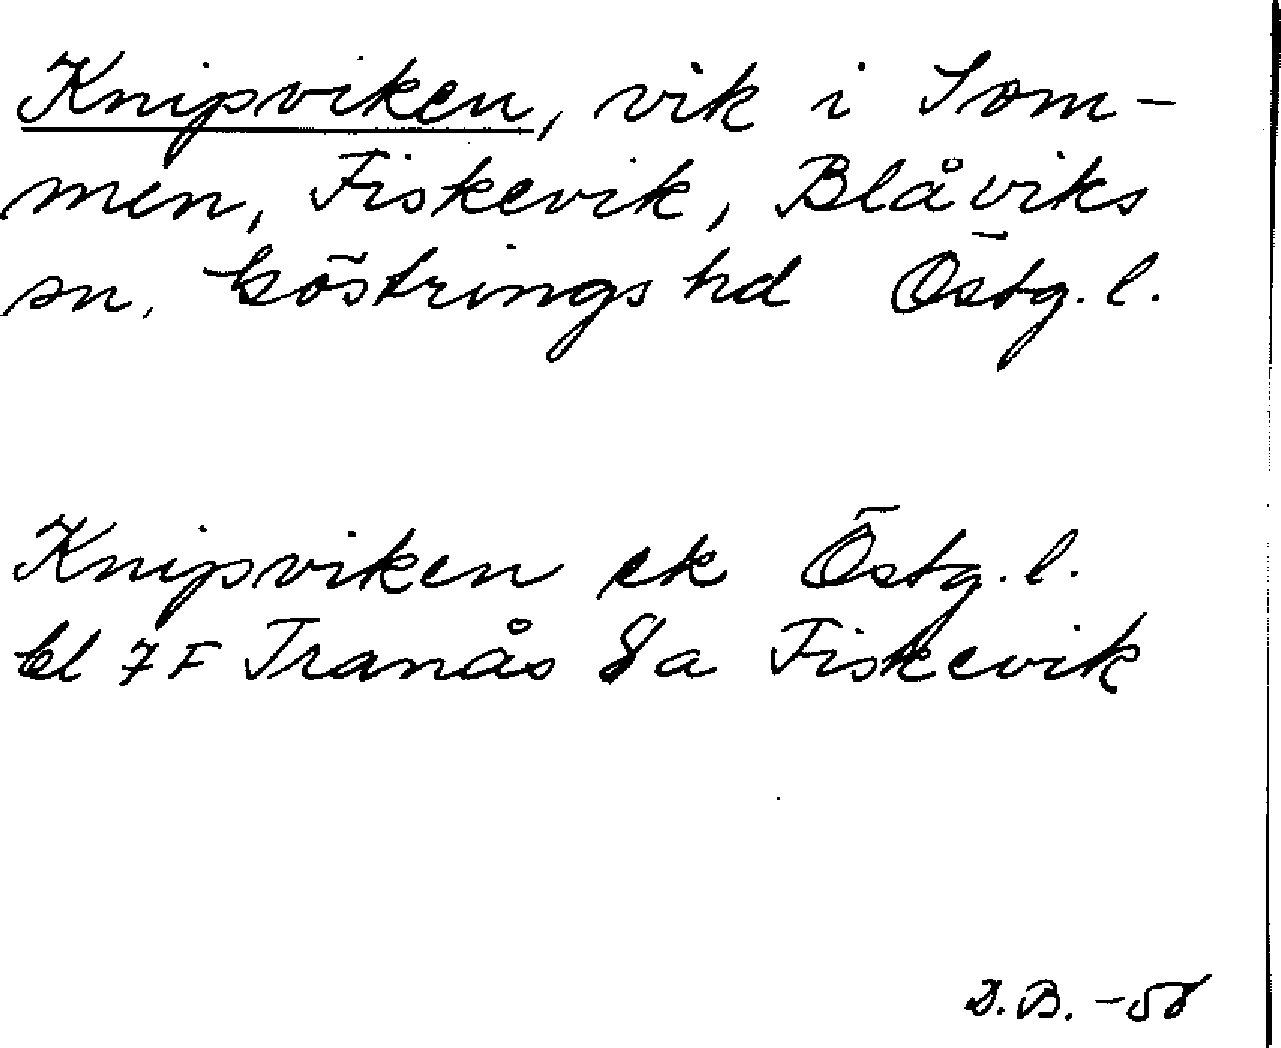 Knipviken, vik i Som-
men, Fiskevik, Blåviks
sn, Göstrings hd Östg. l.
Knipviken ek Östg. l.
bl 7F Tranås 8a Fiskevik
D.B. -58